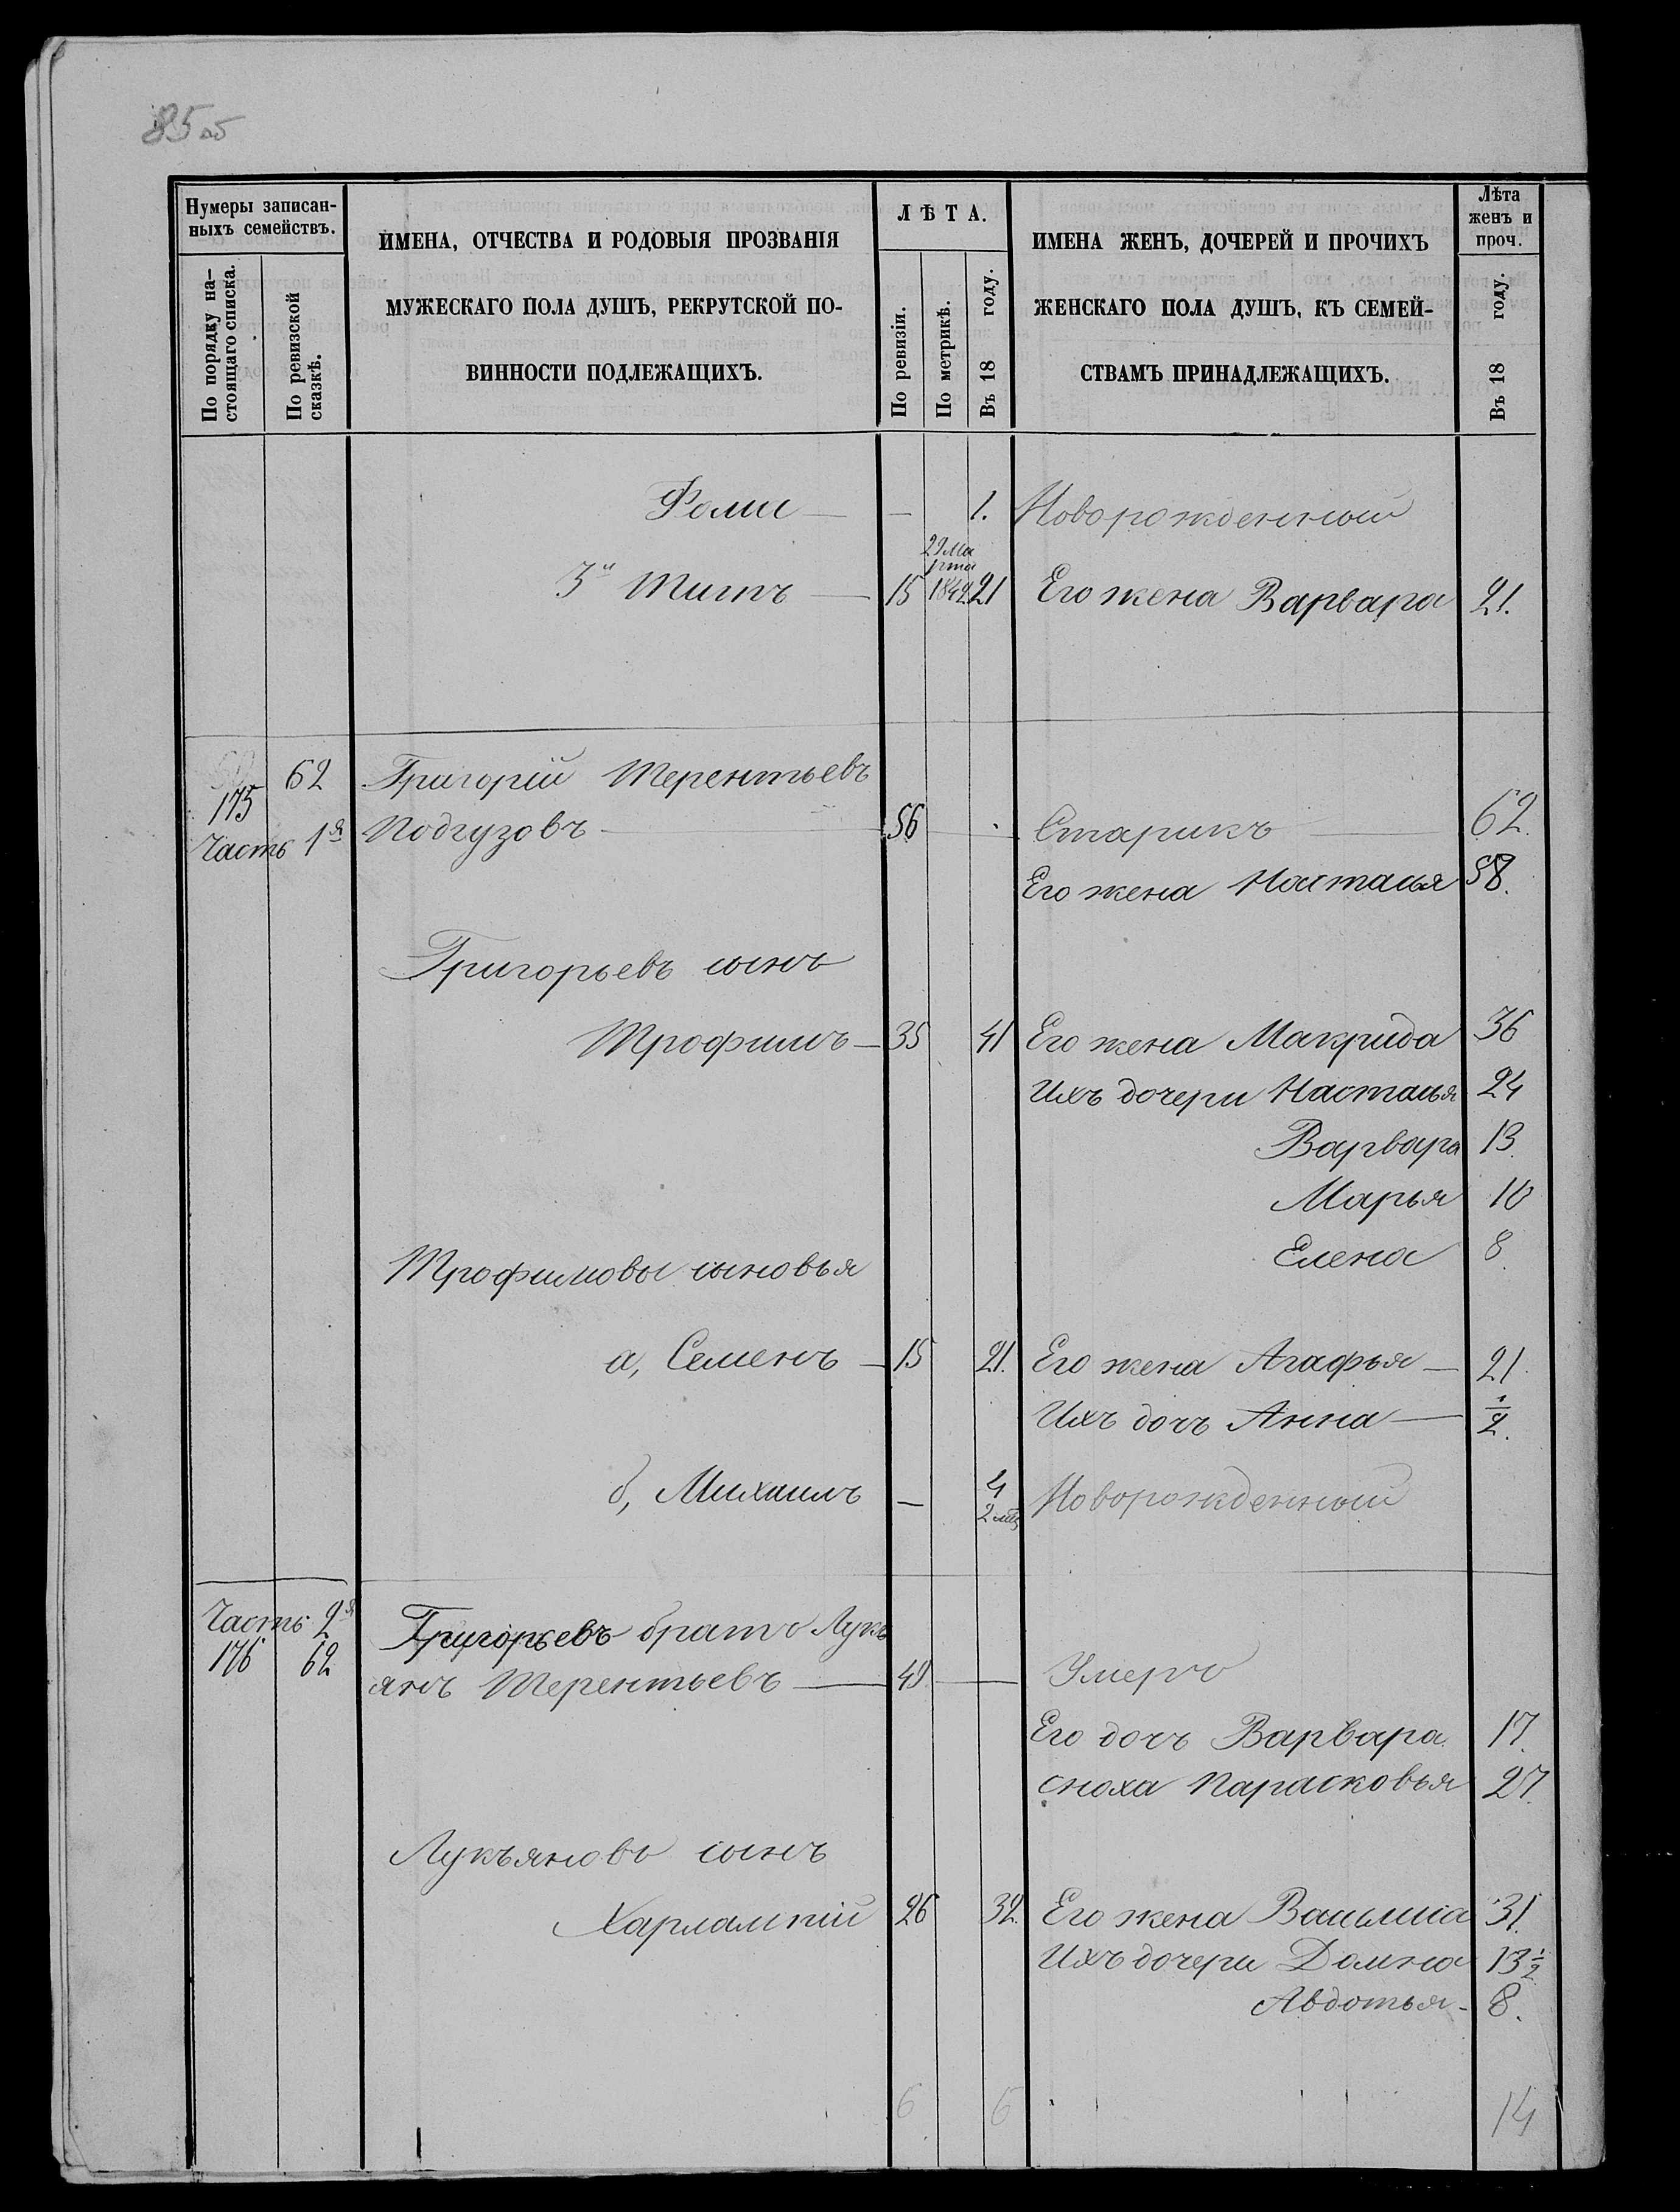 85 об
Нумеры записан-
ныхъ семействъ.
По порядку на-
стоящаго списка.
По ревизской
сказкѣ.
ИМЕНА, ОТЧЕСТВА И РОДОВЫЯ ПРОЗВАНІЯ
МУЖЕСКАГО ПОЛА ДУШЪ, РЕКРУТСКОЙ ПО-
ВИННОСТИ ПОДЛЕЖАЩИХЪ.
ЛѢТА.
По ревизіи.
По метрикѣ.
Въ 18 году.
ИМЕНА ЖЕНЪ, ДОЧЕРЕЙ И ПРОЧИХЪ
ЖЕНСКАГО ПОЛА ДУШЪ, КЪ СЕМЕЙ-
СТВАМЪ ПРИНАДЛЕЖАЩИХЪ.
Лѣта
женъ и
проч.
Въ 18 году.
Фома — — 1. Новорожденный
29 Ма
рта
3й Титъ — 15 1842 21 Его жена Варвара 21.
62 Григорій Терентьевъ
175
Часть 1я Подгузовъ — 56 — Старикъ — 62.
Его жена Настасья 58.
Григорьевъ сынъ
Трофимъ — 35 41 Его жена Макрида 36
Ихъ дочери Настасья 24
Варвара 13.
Марья 10
Елена 8.
Трофимовы сыновья
а, Семенъ — 15 21. Его жена Агафья — 21.
Ихъ дочь Анна — 1/2.
б, Михаилъ — 4 Новорожденный
2 мѣ
Часть 2я Григорьевъ братъ Лукь
176 62
янъ Терентьевъ — 49 — Умеръ
Его дочь Варвара 17.
сноха Парасковья 27.
Лукъяновъ сынъ
Харлампій 26 32. Его жена Васылиса 31.
Ихъ дочери Домна 13 1/2
Авдотья - 8.
6 6 14